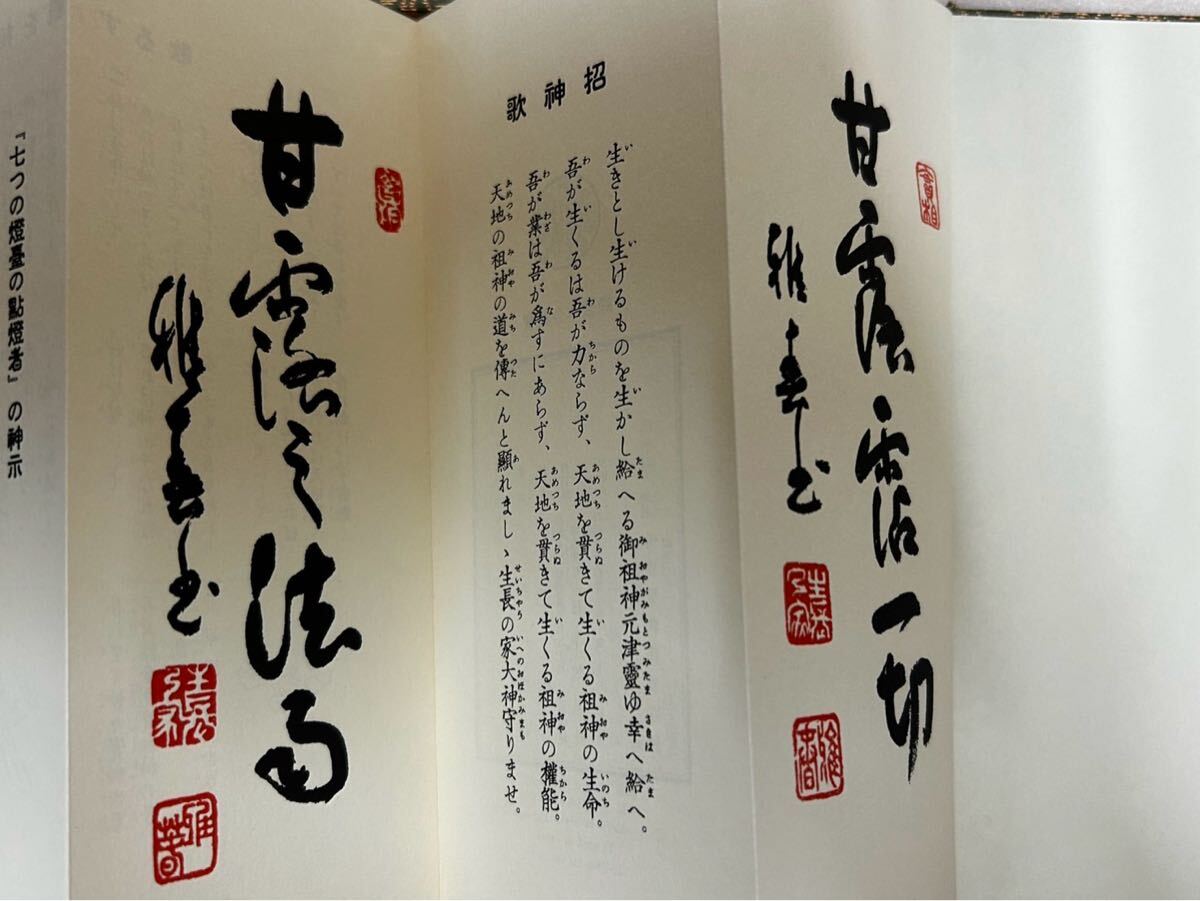 甘露霑一切
雅春書
招神歌
生きとし生けるものを生かし給へる御祖神元津靈ゆ幸へ給へ。
吾が生くるは吾が力ならず、天地を貫きて生くる祖神の生命。
吾が業は吾が爲すにあらず、天地を貫きて生くる祖神の權能。
天地の祖神の道を傳へんと顯れましゝ生長の家大神守りませ。
甘露之法雨
雅春書
『七つの燈臺の點燈者』の神示